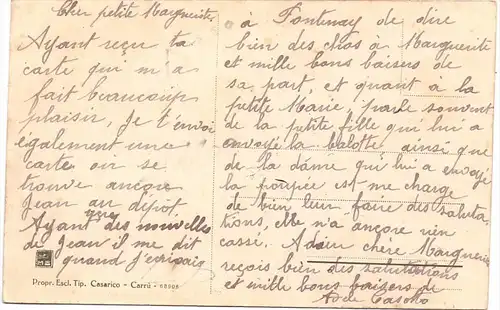 Cher petite Marguerite
Ayant reçu ta
carte qui m'a
fait beaucoup
plaisir, Je t'envoi
également une
carte où se
trouve ancore
Jean au dépot.
Ayant des nouvelles
de Jean il me dit
quand j'ecrirais
à Fontenay de dire
bien des chos à Marguerite
et mille bons baisers de
sa part, et quant à la
petite Marie, parle souvent
de la petite fille qui lui a
envoyé la balotte ainsi que
de la dame qui lui a envoyé
la poupée et me charge
de bien leur faire des saluta-
tions, elle n'a ancore rien
cassé. Adieu chère Marguerite
reçois bien des salutations
et mille bons baisers de
Propr. Escl. Tip. Casarico - Carrù -